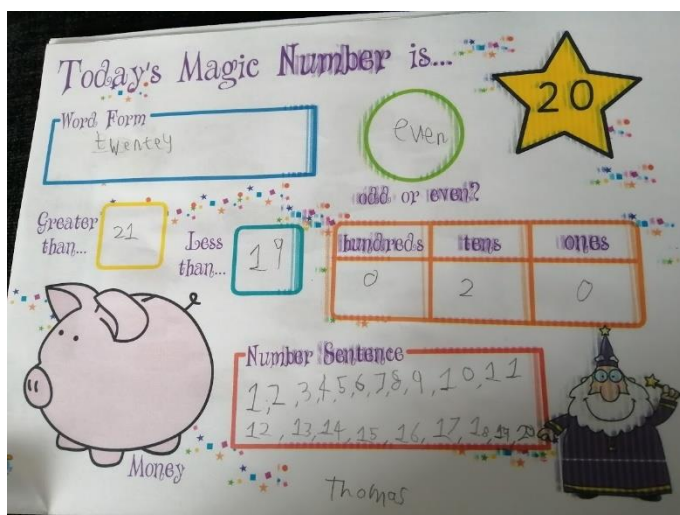 Today's Magic Number is...
20
Word Form
twentey
even
odd or even?
Greater
than...
21
Less
than...
19
hundreds tens ones
0 2 0
Number Sentence
1,2,3,4,5,6,7,8,9,10,11
12,13,14,15,16,17,18,19,20
Money
Thomas